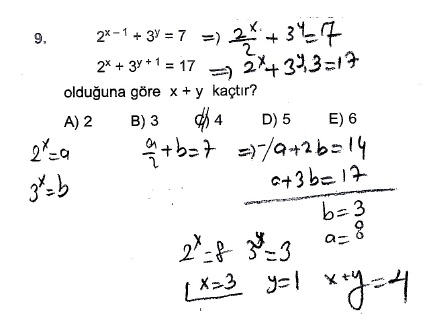 9. 2^(x-1) + 3^y = 7 => 2^x/2 + 3^y = 7
2^x + 3^(y+1) = 17 => 2^x + 3^y.3 = 17
olduğuna göre x + y kaçtır?
A) 2 B) 3 C) 4 D) 5 E) 6
2^x = a a/2 + b = 7 => -/a + 2b = 14
3^x = b a + 3b = 17
b = 3
2^x = 8 3^y = 3 a = 8
x = 3 y = 1 x + y = 4